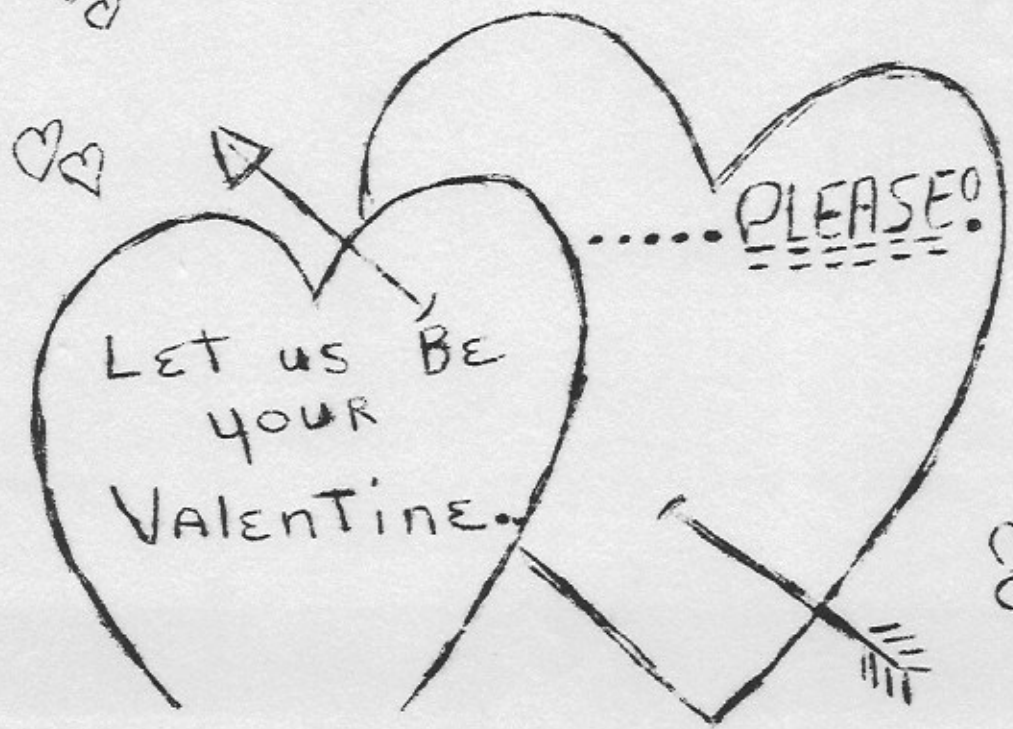 LET us BE
YOUR
VALENTiNE..
.....PLEASE!